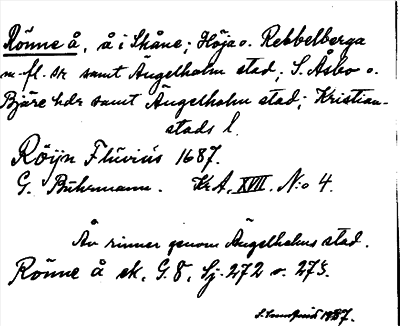 Rönne å, å i Skåne; Höja o. Rebbelberga
m. fl. snr samt Ängelholm stad, S. Åsbo o.
Bjäre hdr samt Ängelholm stad; Kristian-
stads l.
Röÿn Fluviús 1687.
G. Buhrmann. Kr. A. XVII. N:o 4.
Ån rinner genom Ängelholms stad.
Rönne å ek. G. 8, Sj. 272 o. 273.
1937.